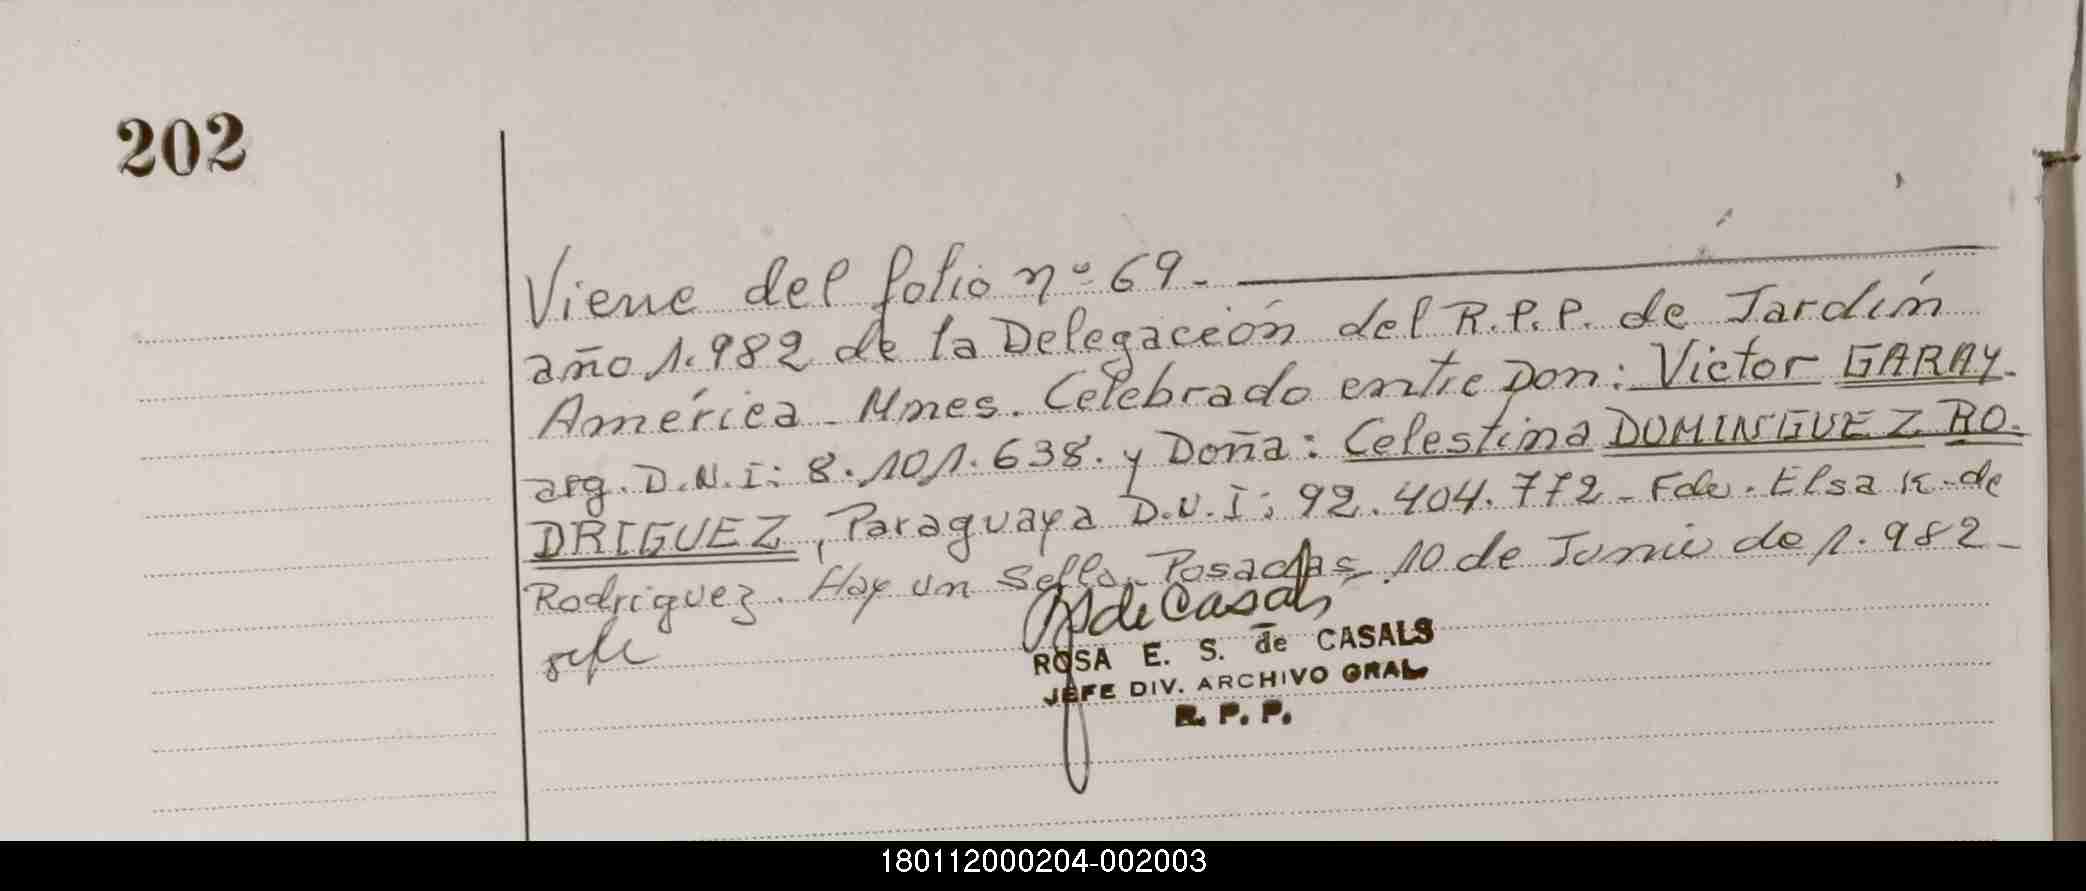 202
Viene del folio nº 69.
año 1.982 de la Delegación del R.P.P. de Jardín
América - Mnes. Celebrado entre Don: Victor GARAY.
arg. D.N.I: 8.101.638. y Doña: Celestina DOMINGUEZ RO.
DRIGUEZ, Paraguaya D.N.I: 92.404.772 - Fdo. Elsa K. de
Rodriguez. Hay un Sello. Posadas, 10 de Junio de 1.982 -
de Casals
ROSA E. S. de CASALS
JEFE DIV. ARCHIVO GRAL
R. P. P.
180112000204-002003